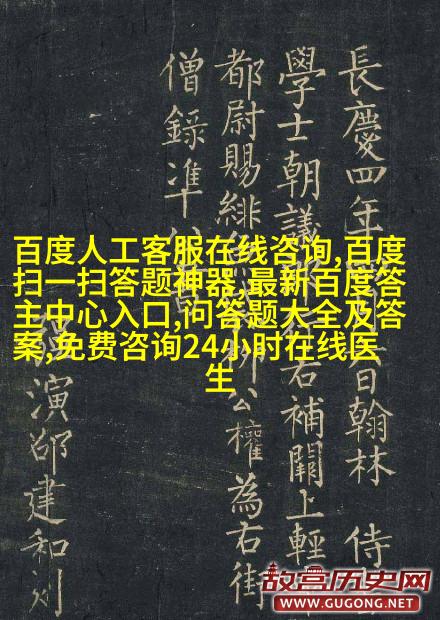 長慶四年 日翰林 侍
學士朝議 右補闕上輕
都尉賜緋 公權為右街
僧錄准
演邵建和刻
百度人工客服在线咨询,百度
扫一扫答题神器,最新百度答
主中心入口,问答题大全及答
案,免费咨询24小时在线医
生
故宫历史网
WWW.GUGONG.NET